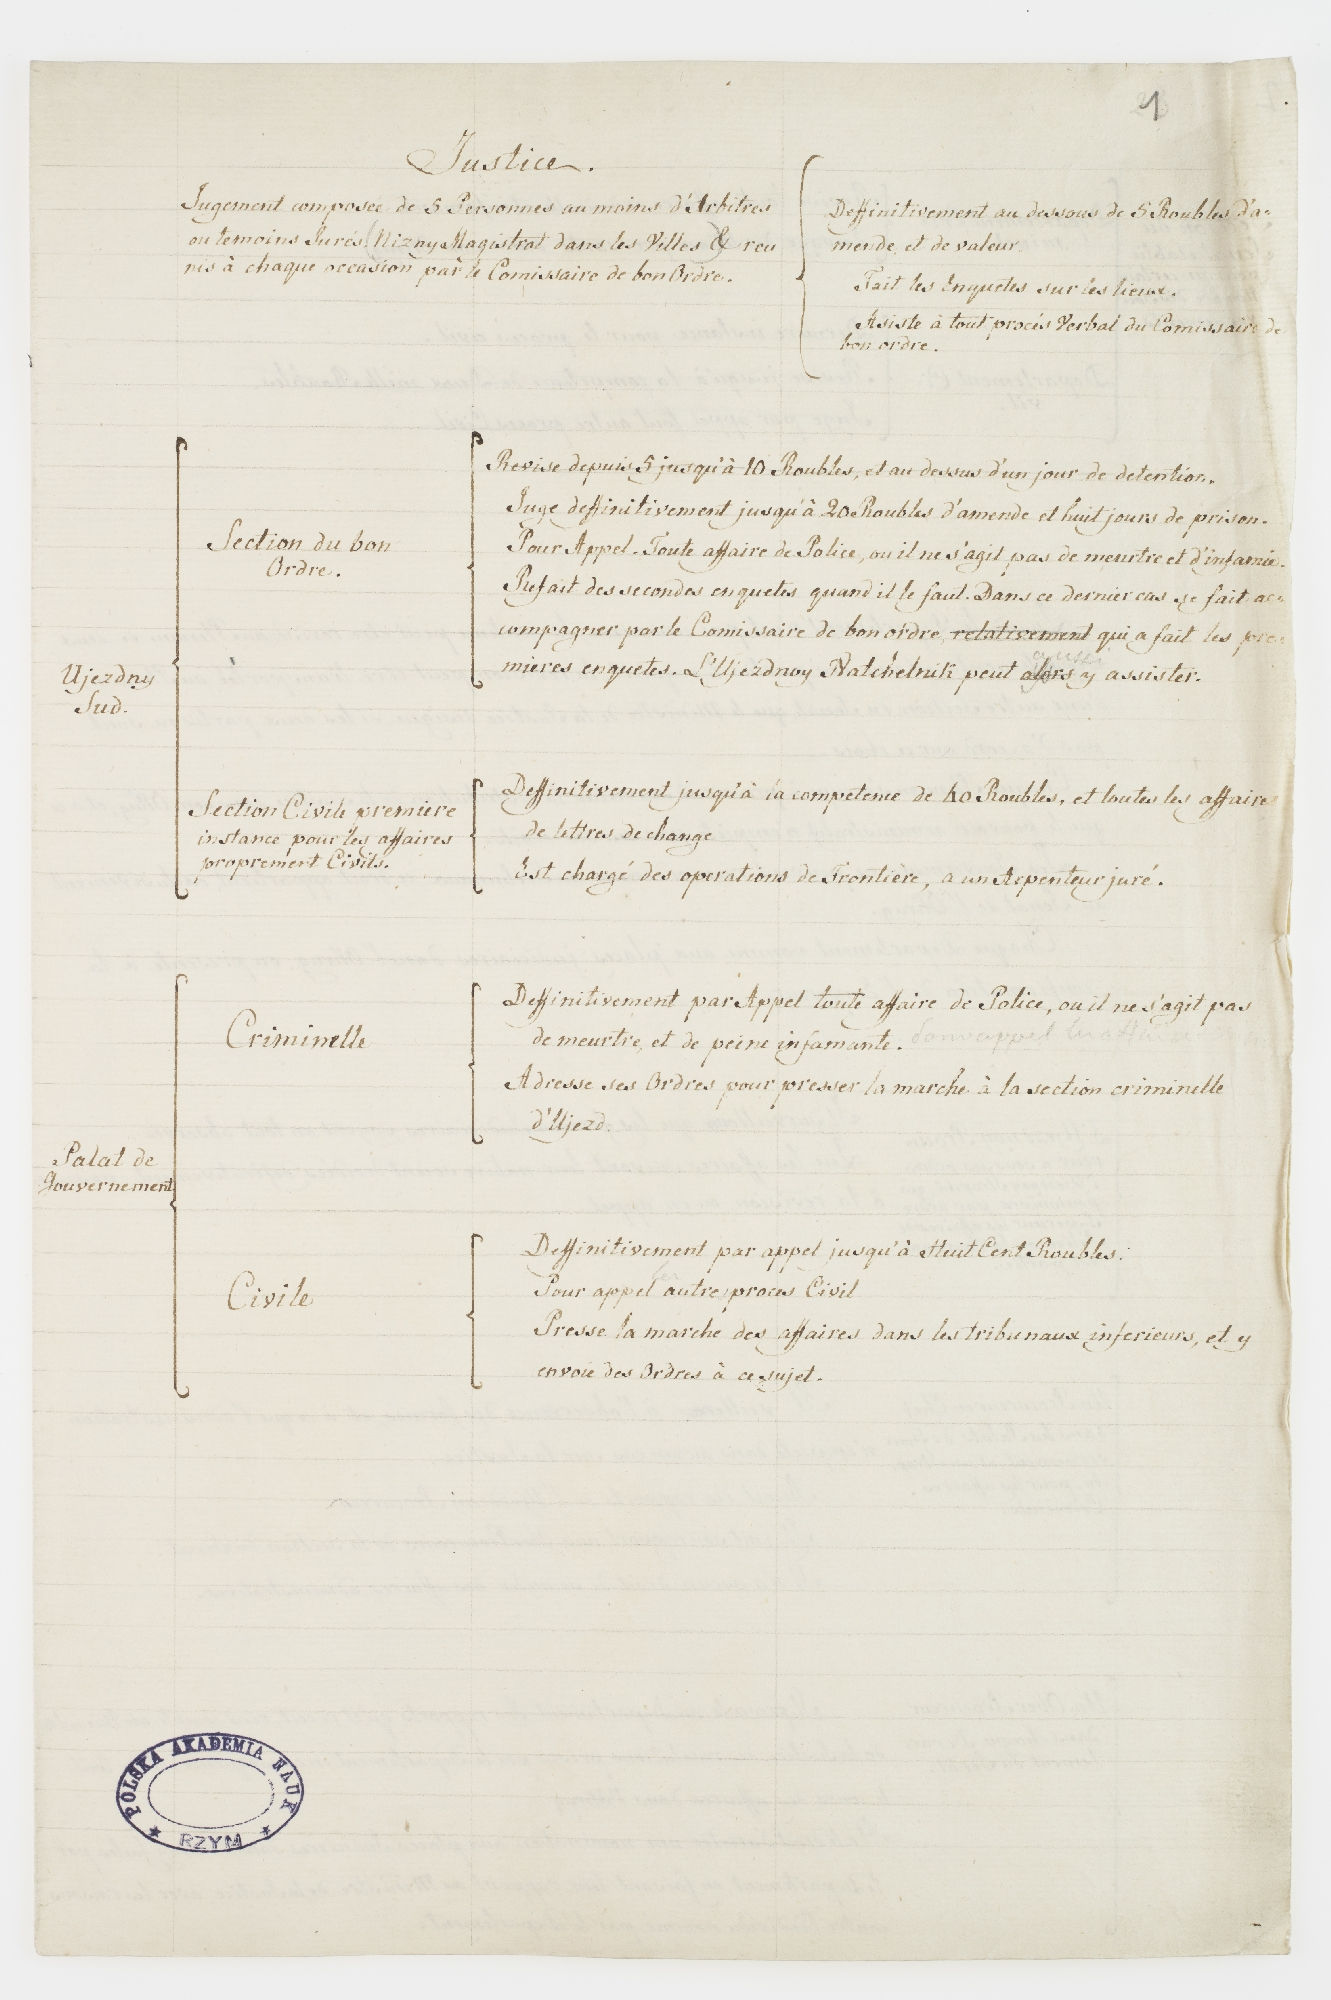 1
Justice.
Jugement composée de 5 Personnes au moins d'Arbitres
ou temoins Jurés (Nizny Magistrat dans les Villes) & reu
nis à chaque occasion par le Comissaire de bon Ordre.
Deffinitivement au dessous de 5 Roubles d'a-
mende, et de valeur
Fait les Enquetes sur les lieux.
Asiste à tout procés Verbal du Comissaire de
bon ordre.
Ujezdny
Sud.
Section du bon
Ordre.
Revise depuis 5 jusqu'à 10 Roubles, et au dessus d'un jour de detention.
Juge deffinitivement jusqu'à 20 Roubles d'amende et huit jours de prison.
Pour Appel. Toute affaire de Police, ou il ne s'agit pas de meurtre et d'infamie.
Refait des secondes enquetes quand il le faut. Dans ce dernier cas se fait ac-
compagner par le Comissaire de bon ordre, relativement qui a fait les pre-
mieres enquetes. L'Ujezdnoy Natchelnik peut alors aussi y assister.
Section Civile premiere
instance pour les affaires
proprement Civils.
Deffinitivement jusqu'à la competence de 40 Roubles, et toutes les affaires
de lettres de change
Est chargé des operations de Frontière, a un Arpenteur juré.
Palat de
Gouvernement
Criminelle
Deffinitivement par Appel toute affaire de Police, ou il ne s'agit pas
de meurtre, et de peine infamante.
Adresse ses Ordres pour presser la marche à la section criminelle
d'Ujezd.
Civile
Deffinitivement par appel jusqu'à Huit Cent Roubles.
Pour appel autre proces Civil
Presse la marche des affaires dans les tribunaux inferieurs, et y
envoie des Ordres à ce sujet.
POLSKA AKADEMIA NAUK
★ RZYM ★